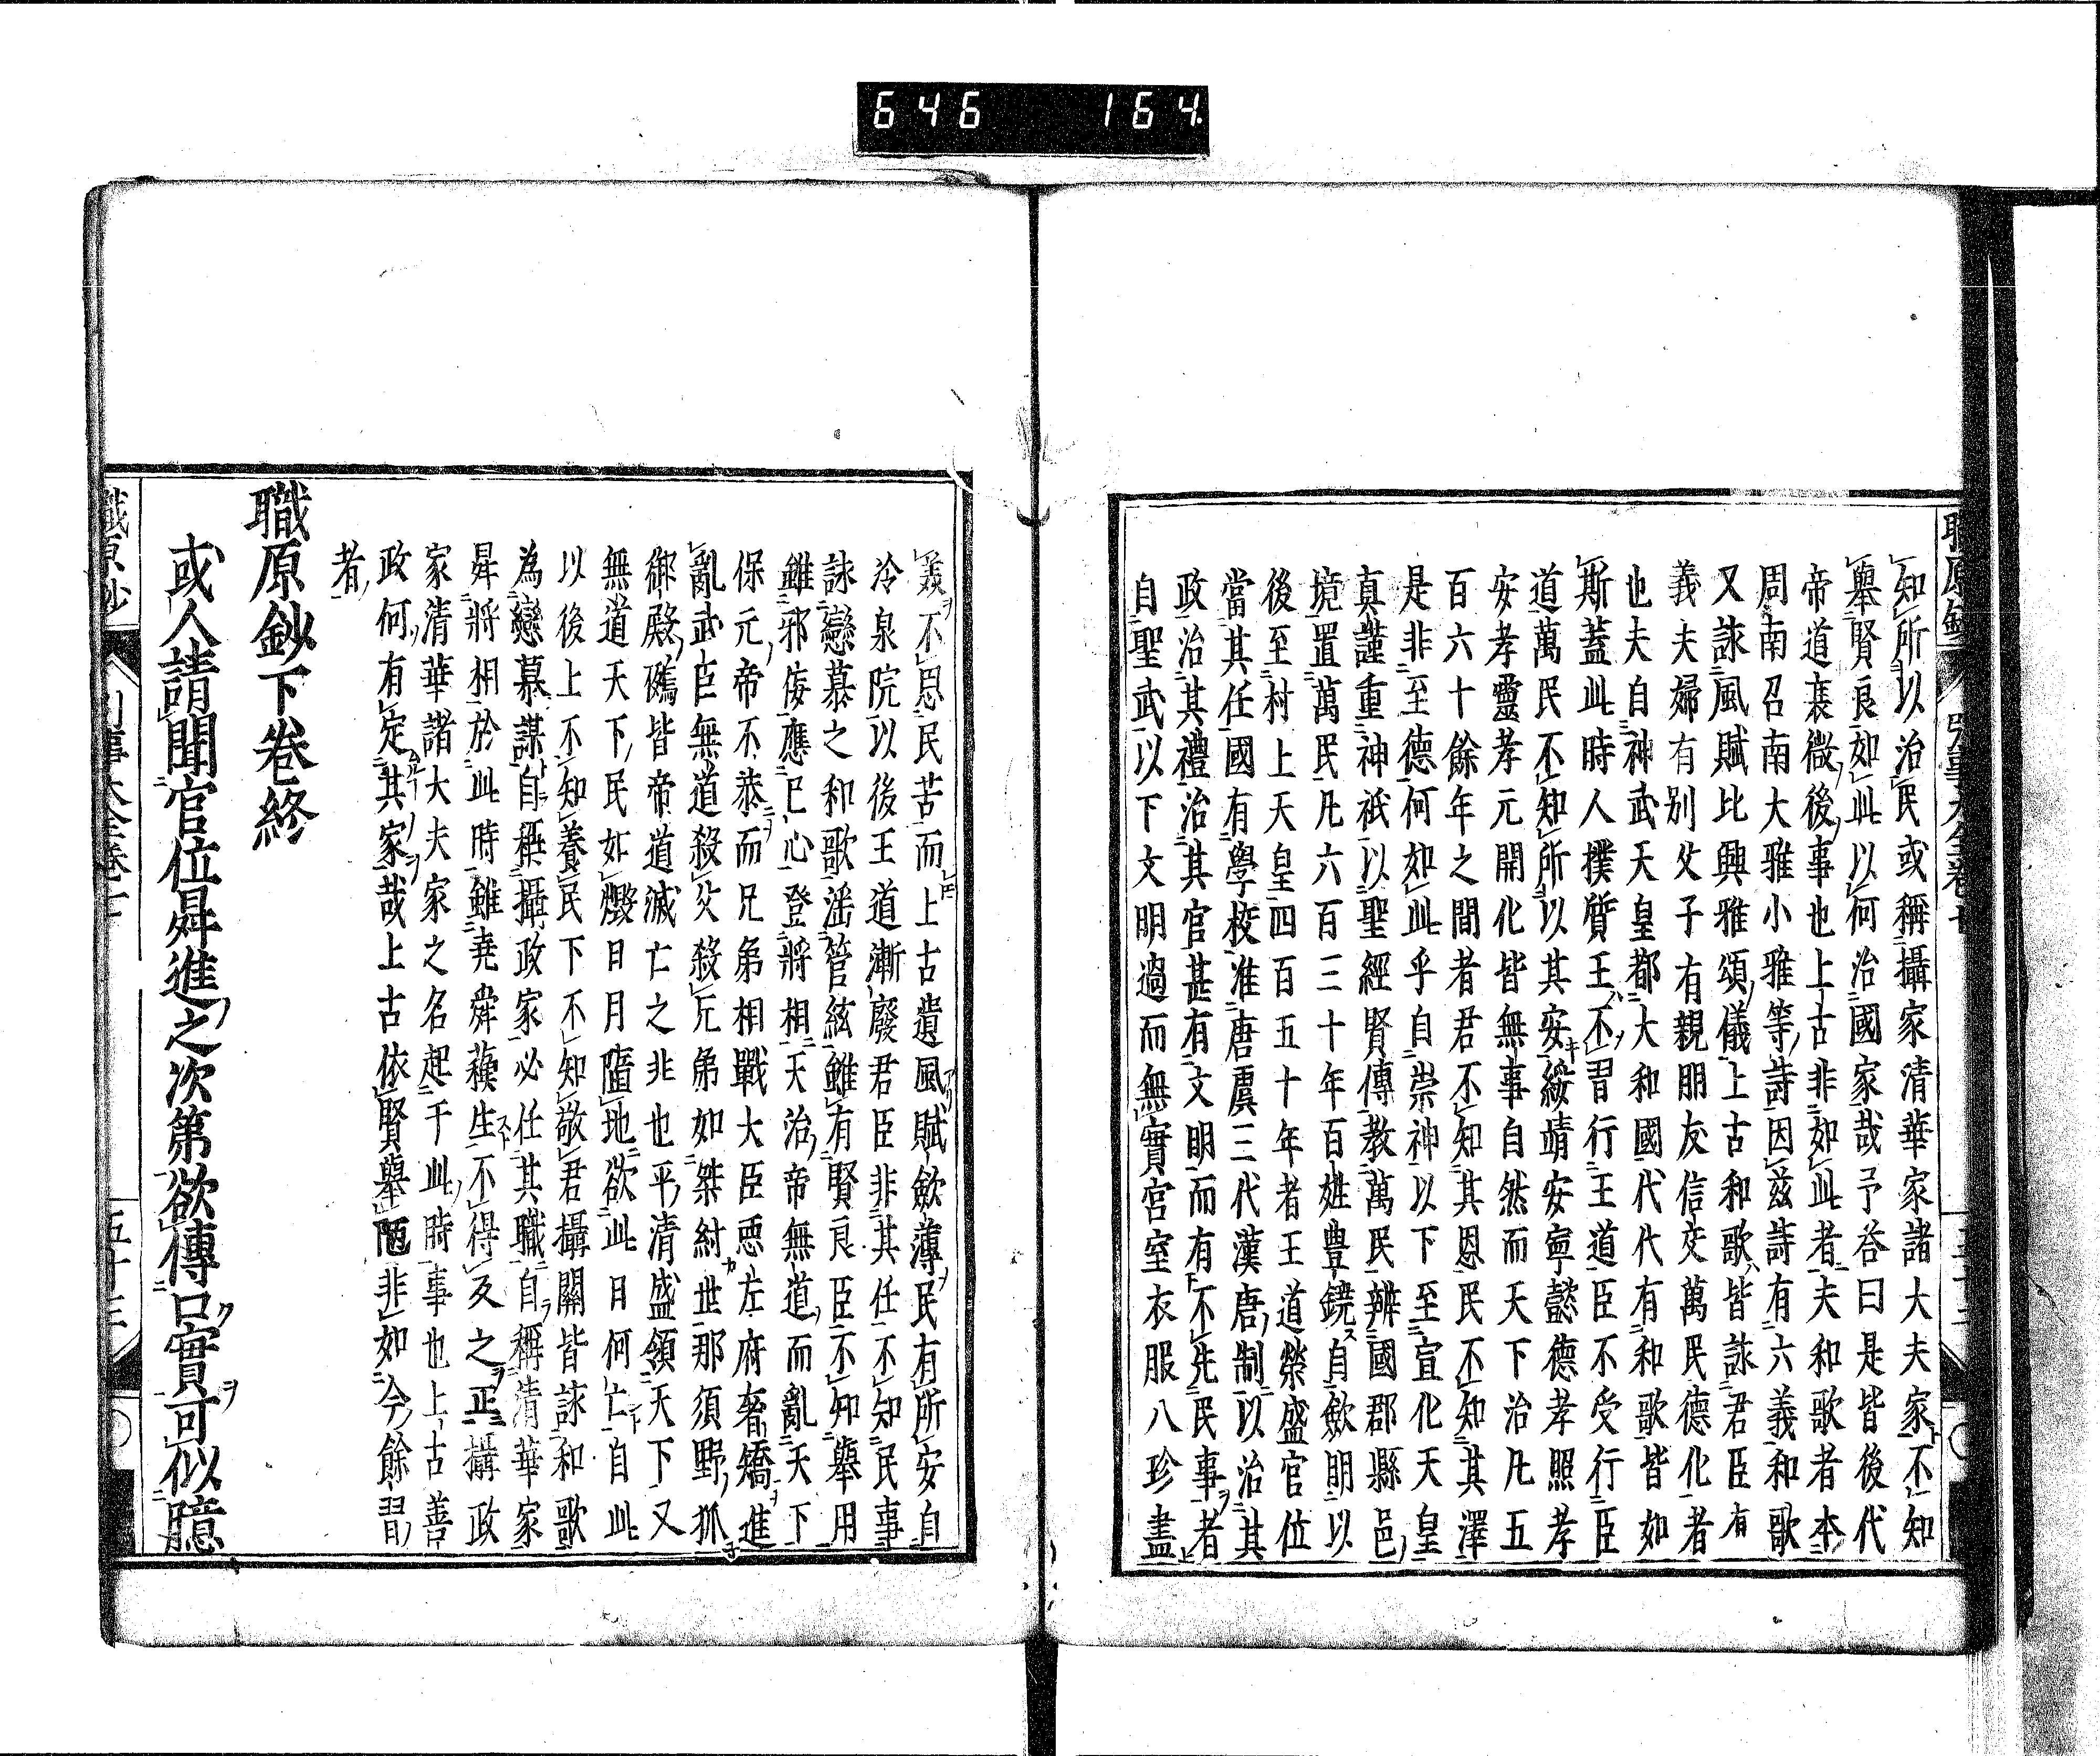 646 164.
知所以治民或稱攝家清華家諸大夫家不知
舉賢良如此以何治國家哉予答曰是皆後代
帝道衰微後事也上古非如此者夫和歌者本
周南召南大雅小雅等詩因茲詩有六義和歌
又詠風賦比興雅頌儀上古和歌皆詠君臣有
義夫婦有別父子有親朋友信交萬民德化者
也夫自神武天皇都大和國代代有和歌皆如
斯蓋此時人撲質王不習行王道臣不受行臣
道萬民不知所以其安安綏靖安寧懿德孝照孝
安孝靈孝元開化皆無事自然而天下治凡五
百六十餘年之間者君不知其恩民不知其澤
是非至德何如此乎自崇神以下至宣化天皇
真謹重神祇以聖經賢傳教萬民辨國郡縣邑
境置萬民凡六百三十年百姓豊鏡自歛明以
後至村上天皇四百五十年者王道榮盛官位
當其任國有學校准唐虞三代漢唐制以治其
政治其禮治其官甚有文明而有不先民事者
自聖武以下文明過而無實宮室衣服八珍盡
美不思民苦而上古遺風賦歛薄民有所安自
冷泉院以後王道漸廢君臣非其任不知民事
詠戀慕之和歌滛管絃雖有賢良臣不知舉用
雖邪侫應已心登將相天治帝無道而亂天下
保元帝不恭而兄弟相戰大臣惡左府奢矯進
亂武臣無道殺父殺兄弟如桀紂世那須野狐
御殿鵺皆帝道滅亡之非也平清盛領天下又
無道天下民如燬日月隨地欲此日何亡自此
以後上不知養民下不知敬君攝關皆詠和歌
為戀慕謀自極攝政家必任其職自稱清華家
昇將相於此時雖堯舜蘓生不得反之正攝政
家清華諸大夫家之名起于此時事也上古善
政何有定其家哉上古依賢舉陋非如今餘習
者
職原鈔下卷終
或人請聞官位昇進之次第欲傳口實可似臆